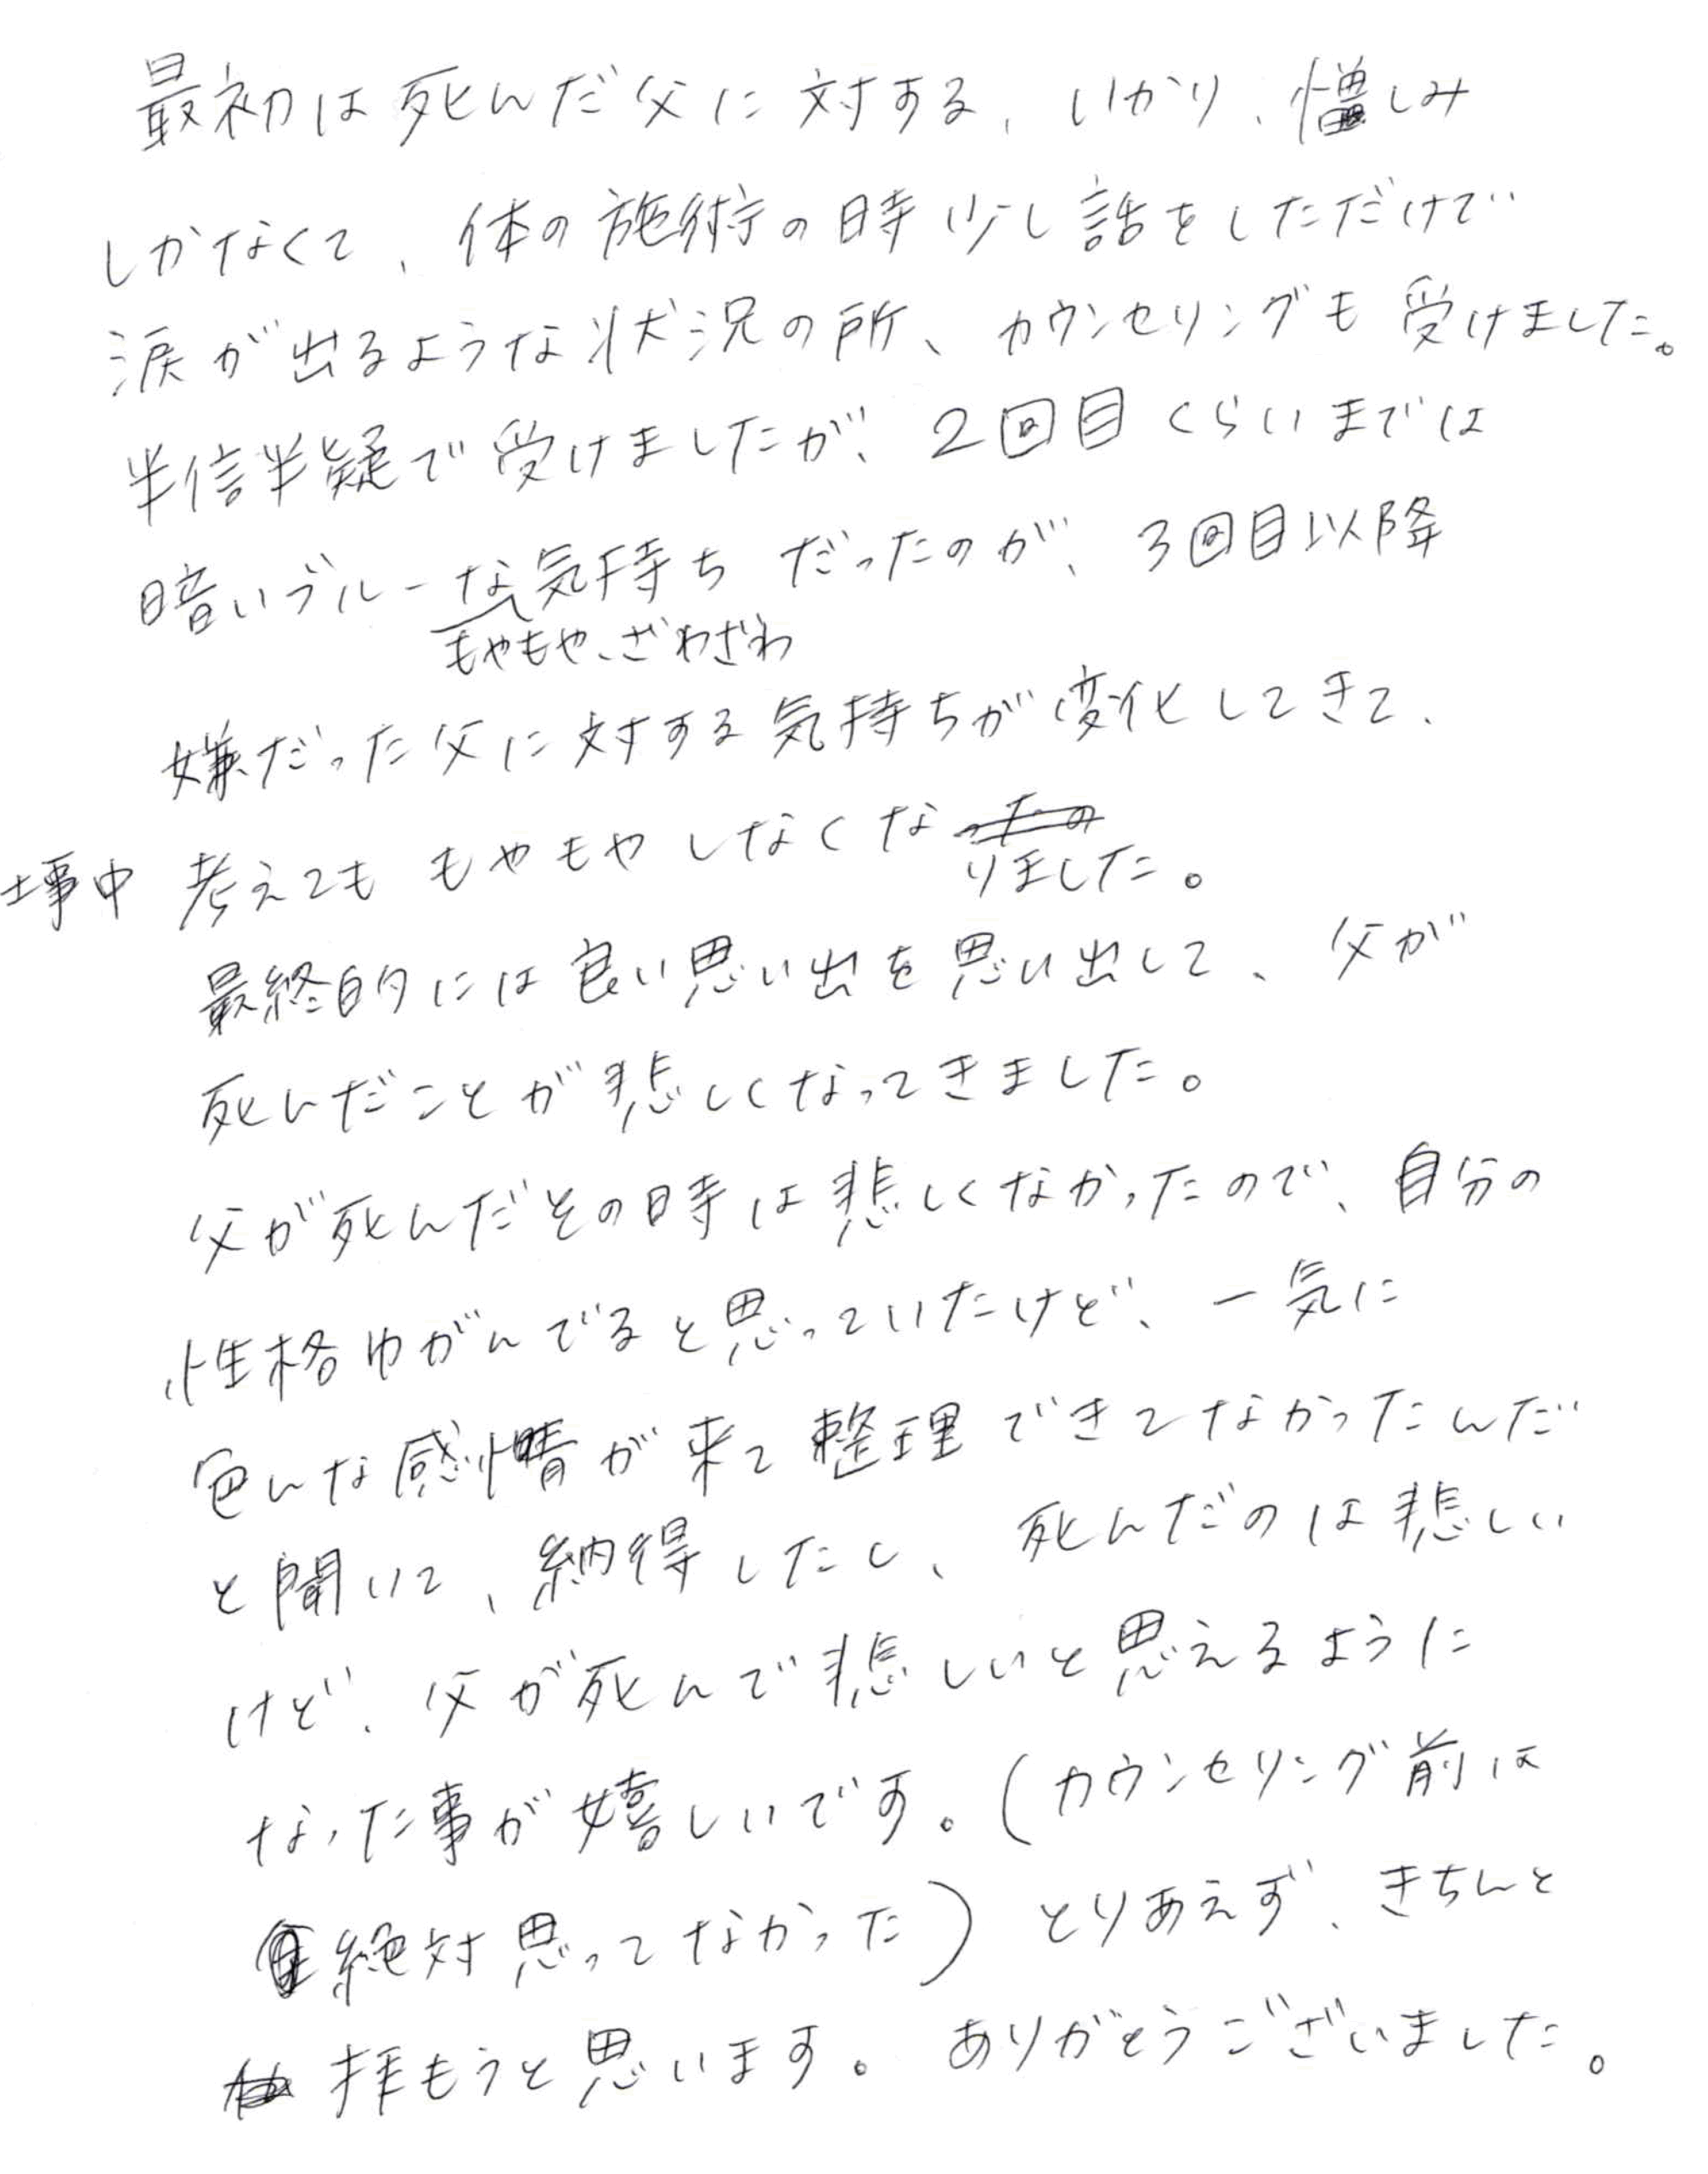 最初は死んだ父に対する、いかり、憎しみ
しかなくて、体の施術の時少し話をしただけで
涙が出るような状況の所、カウンセリングも受けました。
半信半疑で受けましたが、2回目くらいまでは
暗いブルーな気持ちだったのが、3回目以降
もやもや、ざわざわ
嫌だった父に対する気持ちが変化してきて、
事中 考えてももやもやしなくな
りました。
最終的には良い思い出を思い出して、父が
死んだことが悲しくなってきました。
父が死んだその時は悲しくなかったので、自分の
性格ゆがんでると思っていたけど、一気に
色んな感情が来て整理できてなかったんだ
と聞いて、納得したし、死んだのは悲しい
けど、父が死んで悲しいと思えるように
なった事が嬉しいです。(カウンセリング前は
絶対思ってなかった)とりあえず、きちんと
拝もうと思います。ありがとうございました。